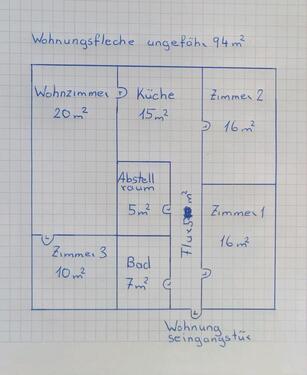 Wohnungsfleche ungefähr 94 m²
Wohnzimmer
20 m²
Küche
15 m²
Zimmer 2
16 m²
Abstell
raum
5 m²
Flur 5 m²
Zimmer 1
16 m²
Zimmer 3
10 m²
Bad
7 m²
Wohnung
seingangstür